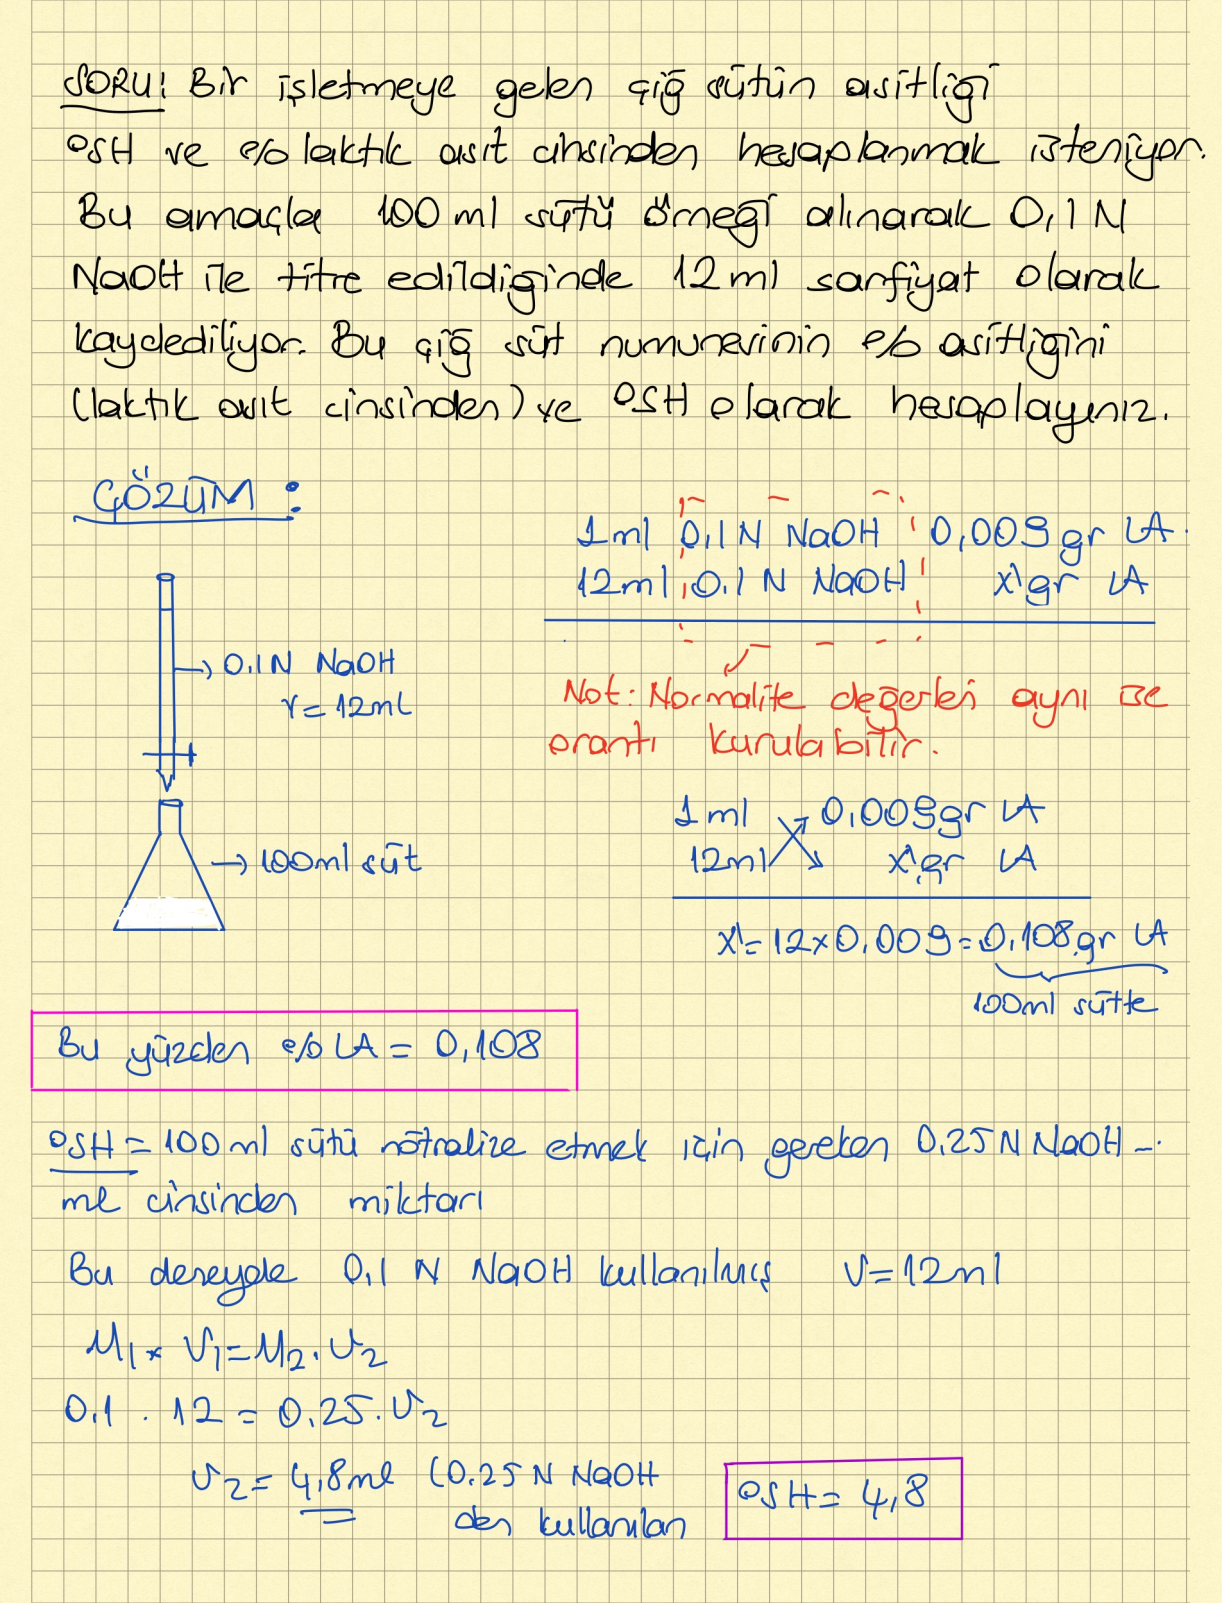 SORU! Bir işletmeye gelen çiğ sütün asitliği
°SH ve % laktik asit cinsinden hesaplanmak isteniyor.
Bu amaçla 100 ml sütü örneği alınarak 0,1 N
NaOH ile titre edildiğinde 12 ml sarfiyat olarak
kaydediliyor. Bu çiğ süt numunesinin % asitliğini
(laktik asit cinsinden) ve °SH olarak hesaplayınız.
ÇÖZÜM :
1ml 0,1N NaOH 0,009 gr LA.
12ml 0.1 N NaOH x' gr LA
→ 0.1N NaOH
V = 12ml
Not: Normalite değerleri aynı ise
orantı kurulabilir.
1 ml 0,009gr LA
12ml x' gr LA
→ 100ml süt
x' = 12 x 0,009 = 0,108 gr LA
100ml sütte
Bu yüzden % LA = 0,108
°SH = 100 ml sütü nötralize etmek için gereken 0.25 N NaOH -
ml cinsinden miktarı
Bu deneyde 0,1 N NaOH kullanılmış V = 12ml
M1 x V1 = M2 . V2
0.1 . 12 = 0.25 . V2
V2 = 4,8ml (0.25 N NaOH
den kullanılan
°SH = 4,8